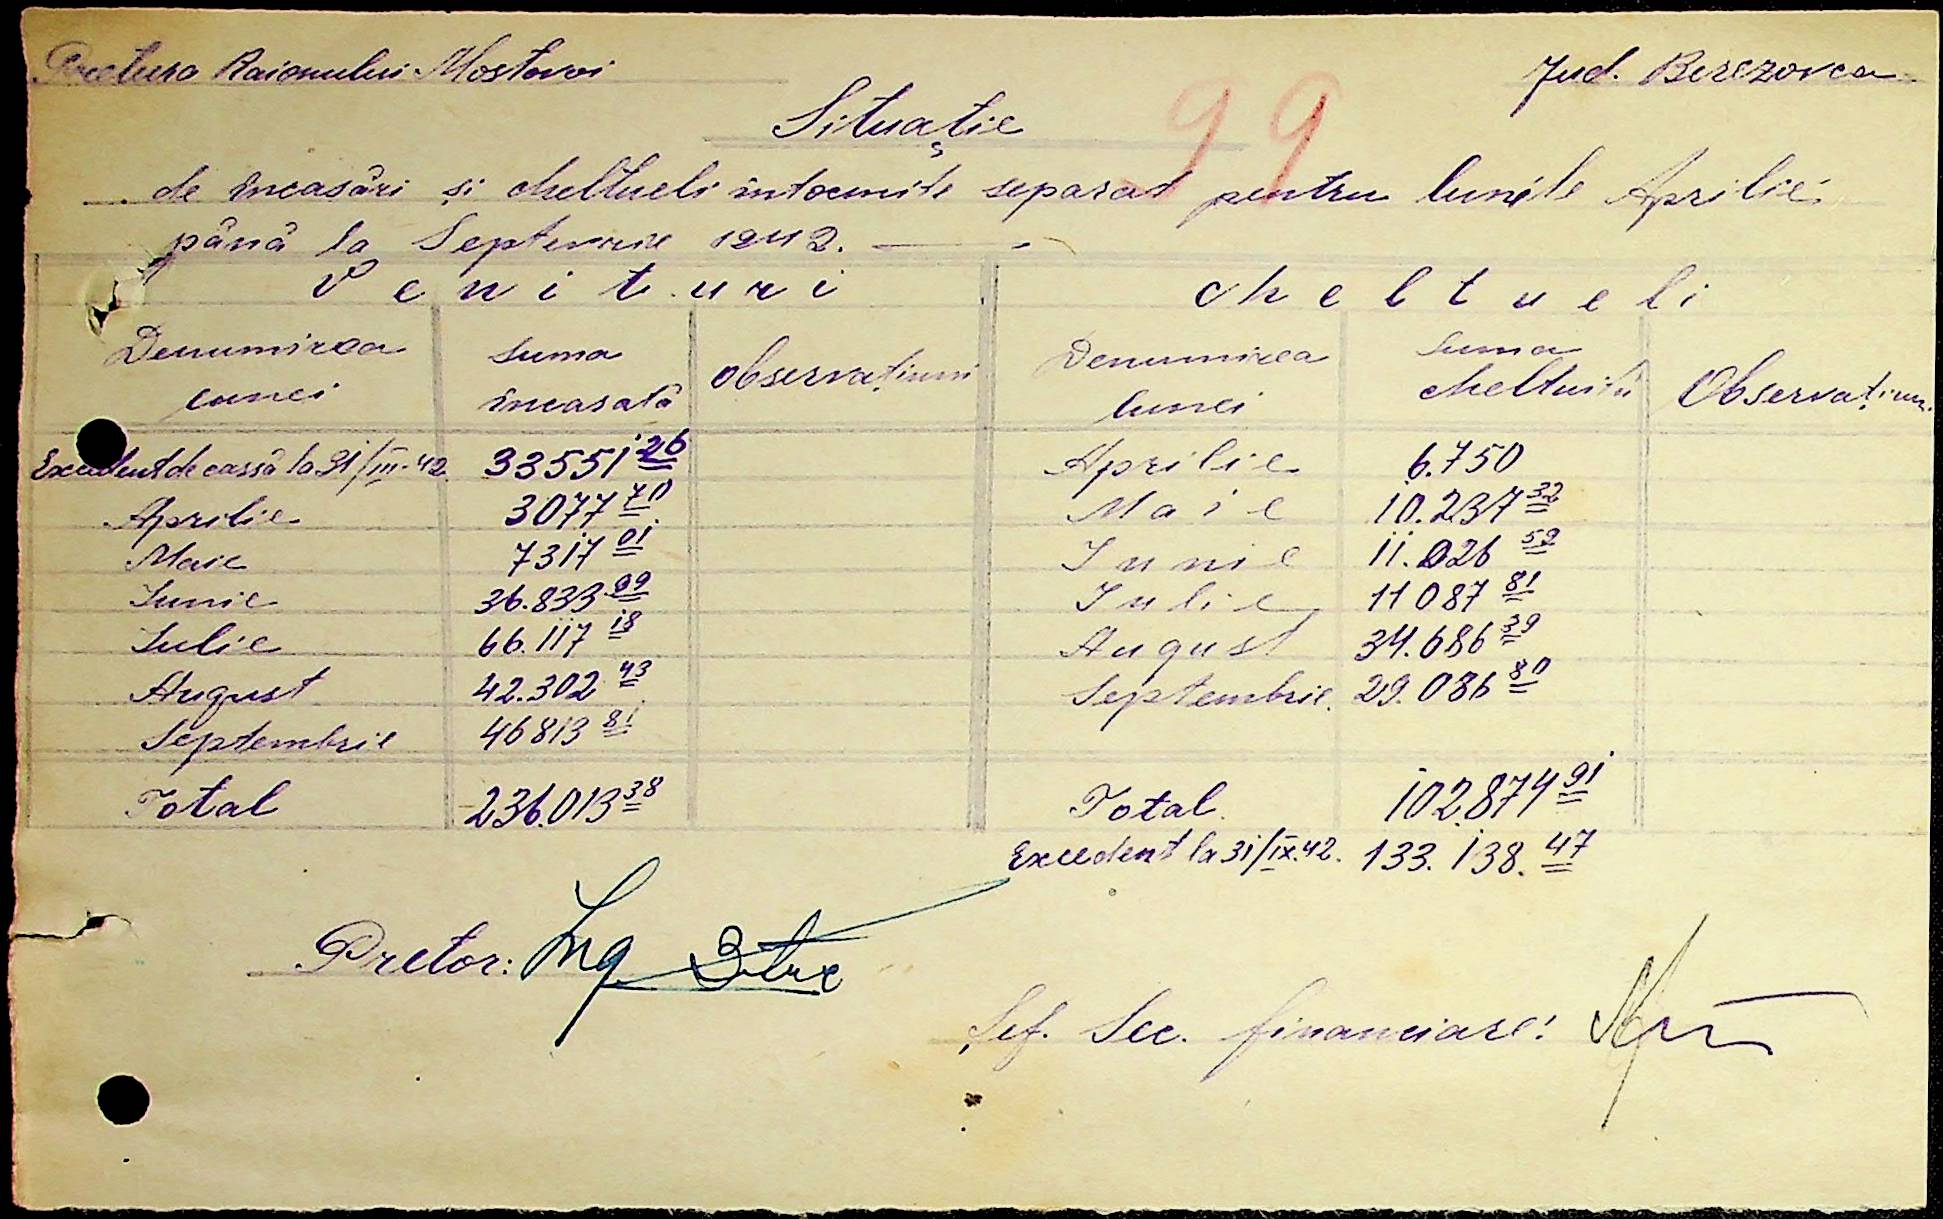 Pretura Raionului Mostovoi Jud. Berezovca
99
Situație
de încasări și cheltueli întocmite separat pentru lunile Aprilie
până la Septemvrie 1942.
Venituri Cheltueli
Denumirea lunei Suma încasată Observațiuni Denumirea lunei Suma cheltuită Observațiuni
Excedent de cassă la 31/III-42. 33551 26 Aprilie 6.750
Aprilie 3077 70 Maie 10.237 32
Maie 7317 01 Iunie 11.026 59
Iunie 36.833 99 Iulie 11087 81
Iulie 66.117 18 August 34.686 39
August 42.302 43 Septembrie. 29.086 80
Septembrie 46813 81
Total 236.013 38 Total. 102.874 91
Excedent la 31/IX.42. 133.138. 47
Pretor: Ing
Șef. Sec. financiare: